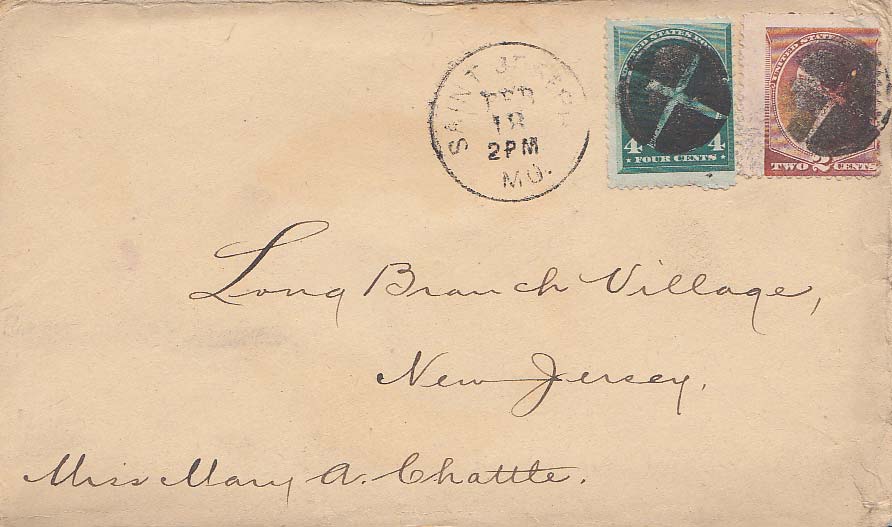 SAINT JOSEPH
FEB
18
2PM
MO.
UNITED STATES
4 4
FOUR CENTS
UNITED STATES
TWO 2 CENTS
Long Branch Village,
New Jersey.
Miss Mary A. Chattle.